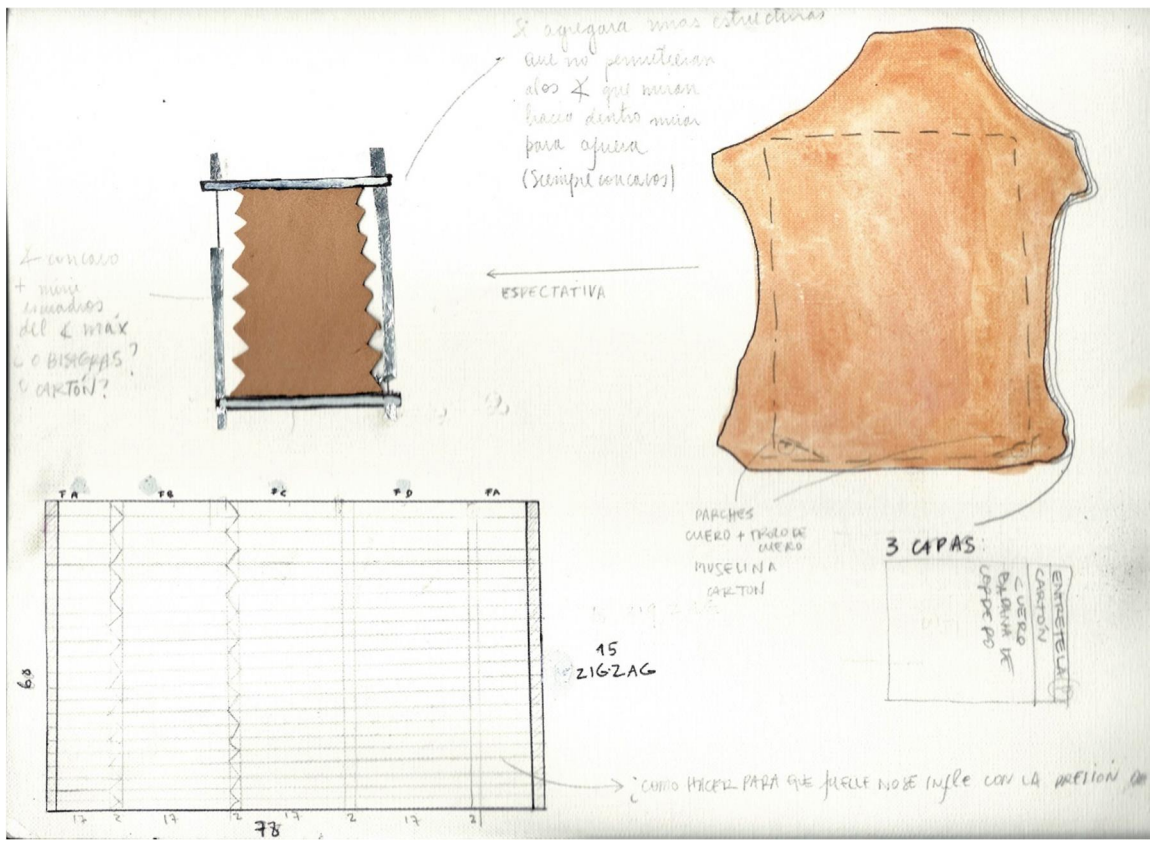 Si agregara unas estructuras
que no permitieran
a los ∡ que miran
hacia dentro mirar
para afuera
(Siempre concavos)
∡ concavo
+ mini
escuadros
del ∡ máx
¿ O BISAGRAS?
¿ CARTÓN?
ESPECTATIVA
PARCHES
CUERO + TROZO DE
CUERO
MUSELINA
CARTON
3 CAPAS:
ENTRETELA
CARTÓN
CUERO
BADANA DE
CORDERO
FA FB FC FD FA
60
15
ZIGZAG
17 2 17 2 17 2 17 2
78
¿COMO HACER PARA QUE FUELLE NO SE INFLE CON LA PRESIÓN